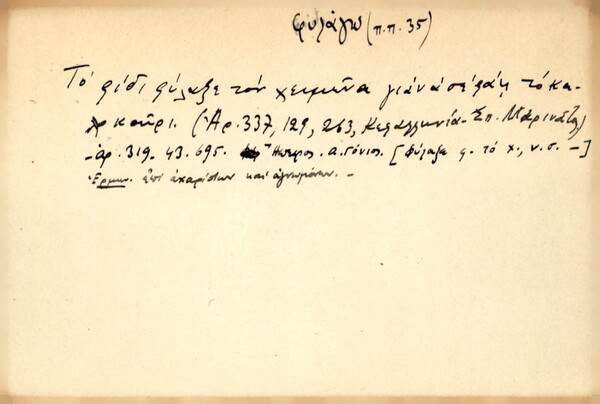 φυλάγω (π.π. 35)
Τό φίδι φύλαξε τόν χειμῶνα γιά νά σέ φάῃ τό κα-
λοκαῖρι. (Ἀρ. 337, 129, 263, Κεφαλληνία - Σπ. Μαρινάτος)
- ἀρ. 319. 43. 695. Ἤπειρος. α. Γόνιος. [Φύλαξε φ. τό χ., ν. σ. -]
Ἑρμην. ἐπί ἀχαρίστων καί ἀγνωμόνων. -